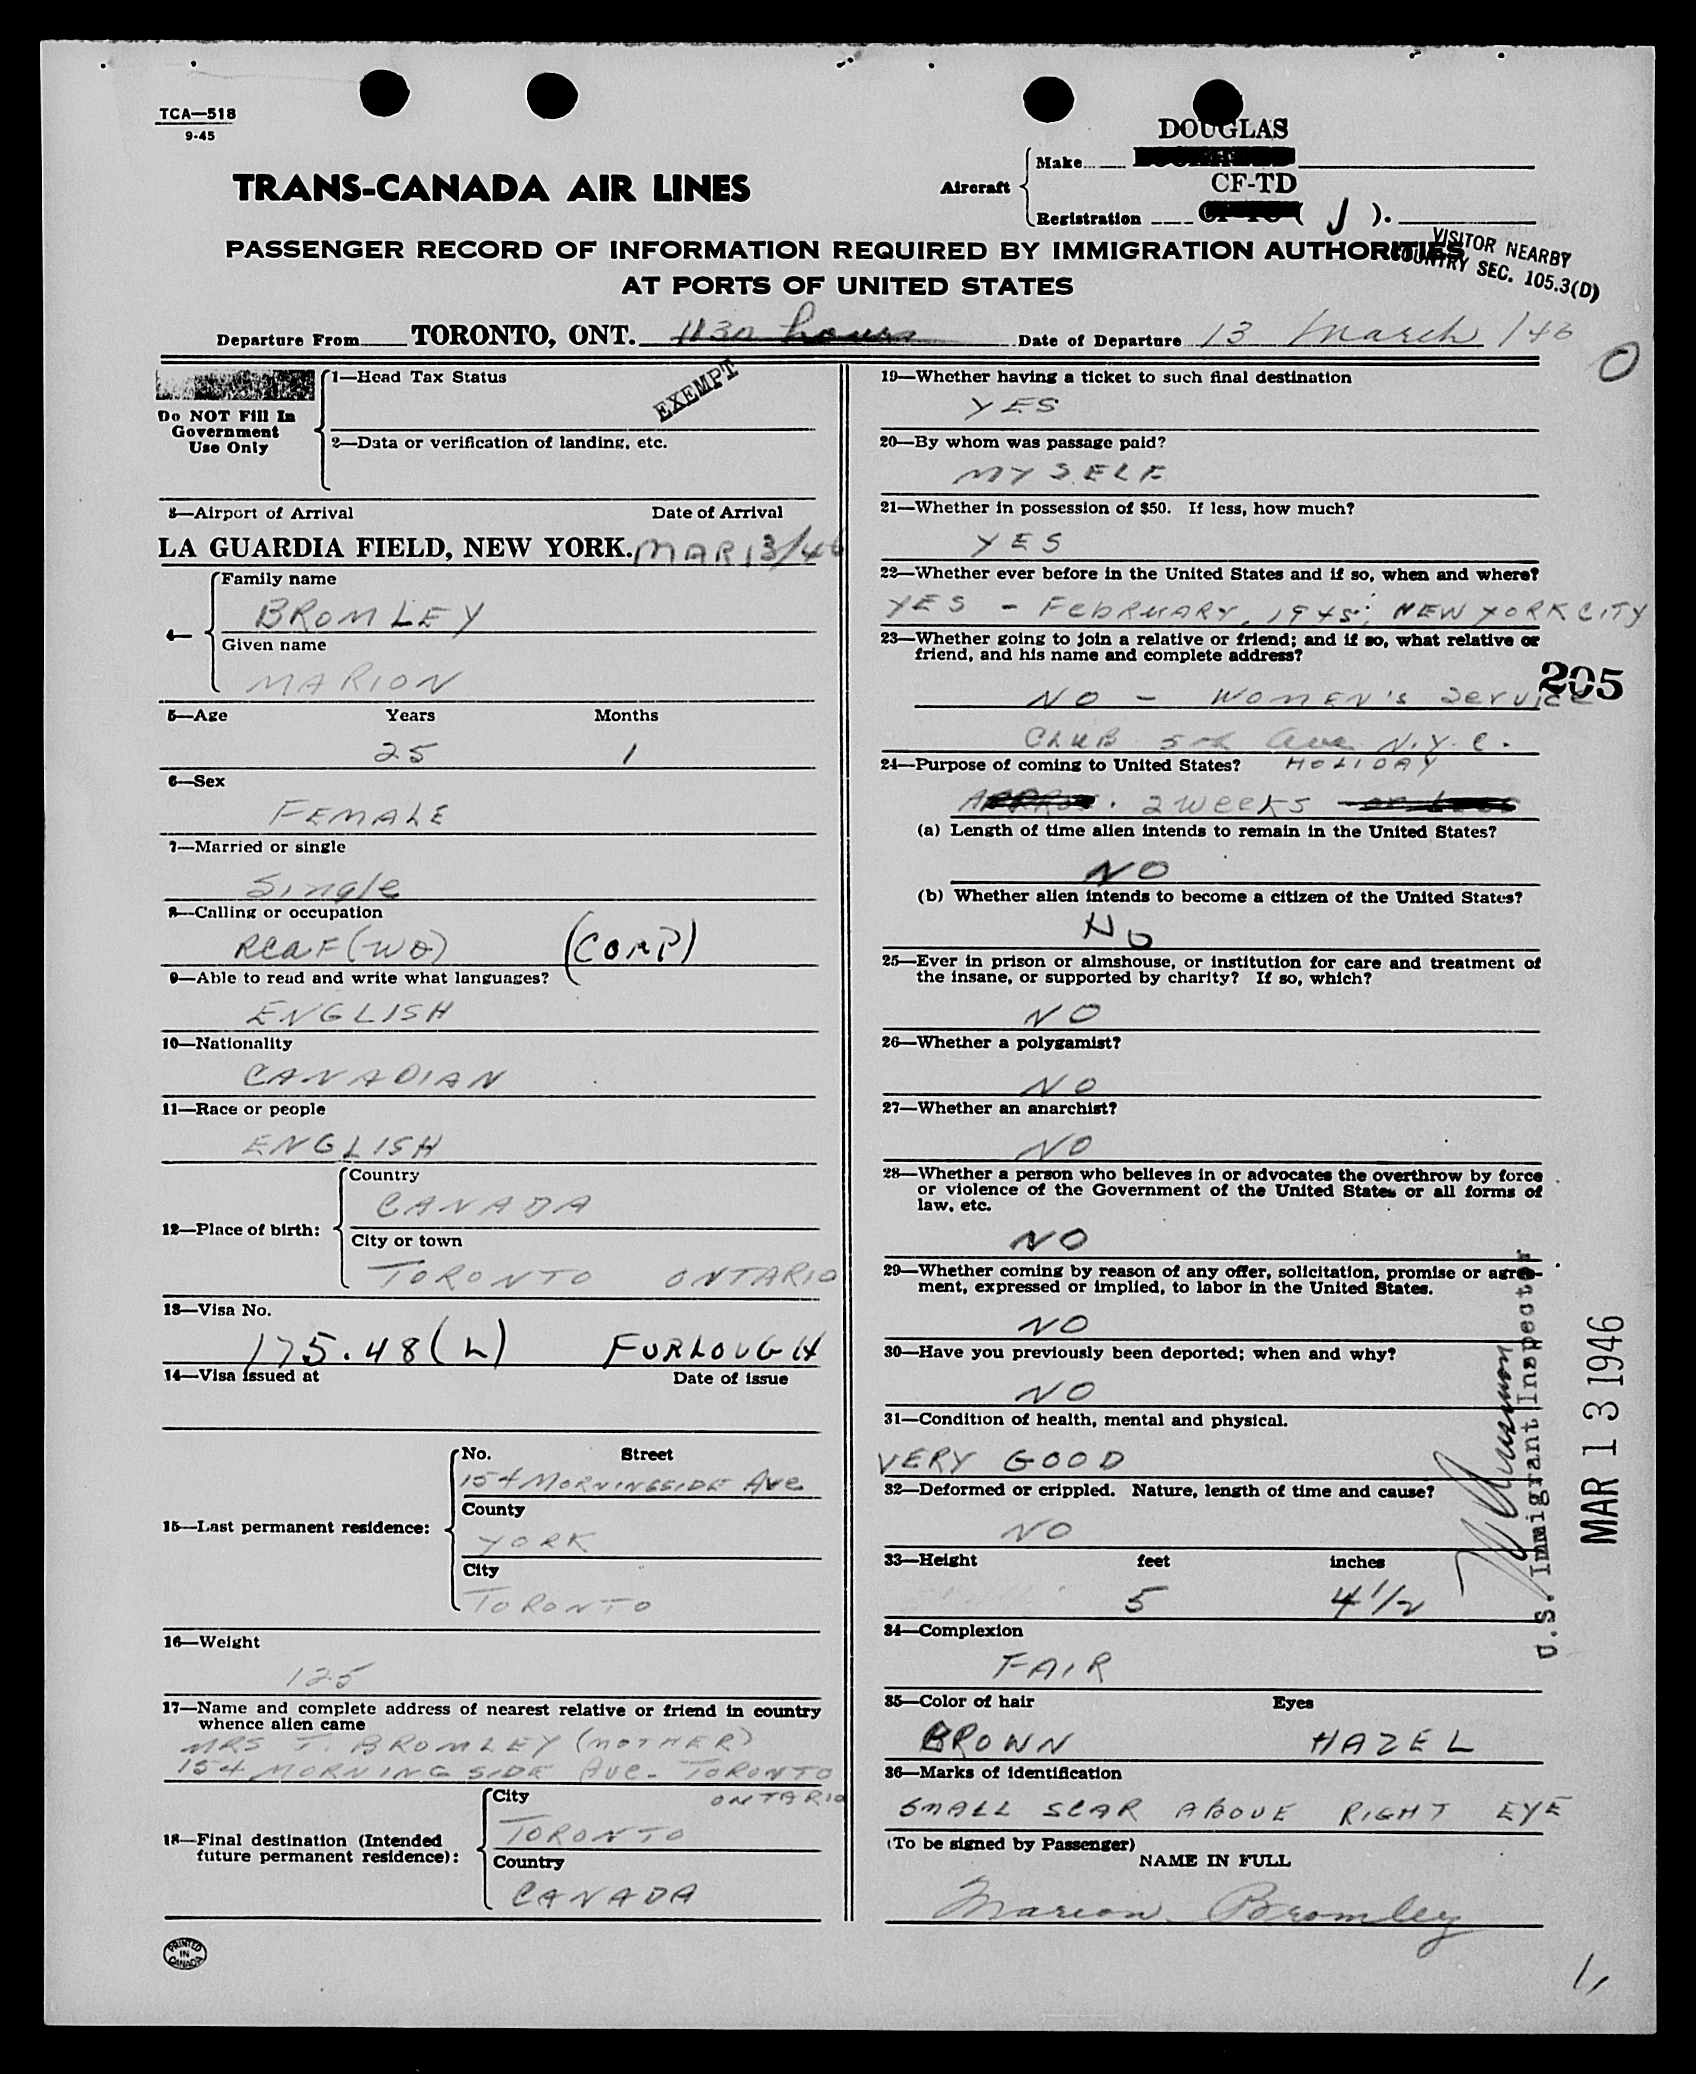 TCA—518
9-45
DOUGLAS
TRANS-CANADA AIR LINES
Aircraft
Make
CF-TD
Registration ( J ).
PASSENGER RECORD OF INFORMATION REQUIRED BY IMMIGRATION AUTHORITIES
AT PORTS OF UNITED STATES
VISITOR NEARBY
COUNTRY SEC. 105.3(D)
Departure From TORONTO, ONT. 1130 hours Date of Departure 13 March /46
0
Do NOT Fill In
Government
Use Only
1—Head Tax Status
EXEMPT
2—Data or verification of landing, etc.
3—Airport of Arrival Date of Arrival
LA GUARDIA FIELD, NEW YORK. MAR 13/46
4—
Family name
BROMLEY
Given name
MARION
5—Age Years Months
25 1
6—Sex
FEMALE
7—Married or single
Single
8—Calling or occupation
RCAF (WD) (CORP)
9—Able to read and write what languages?
ENGLISH
10—Nationality
CANADIAN
11—Race or people
ENGLISH
12—Place of birth:
Country
CANADA
City or town
TORONTO ONTARIO
13—Visa No.
175.48(L) FURLOUGH
14—Visa issued at Date of issue
15—Last permanent residence:
No. Street
154 MORNINGSIDE Ave
County
YORK
City
TORONTO
16—Weight
125
17—Name and complete address of nearest relative or friend in country
whence alien came
MRS J. BROMLEY (MOTHER)
154 MORNINGSIDE Ave. TORONTO
ONTARIO
18—Final destination (Intended
future permanent residence):
City
TORONTO
Country
CANADA
PRINTED
IN
CANADA
19—Whether having a ticket to such final destination
YES
20—By whom was passage paid?
MYSELF
21—Whether in possession of $50. If less, how much?
YES
22—Whether ever before in the United States and if so, when and where?
YES - FEbRUARY, 1945; NEW YORK CITY
23—Whether going to join a relative or friend; and if so, what relative or
friend, and his name and complete address?
205
NO - WOMEN'S Service
CLUB 5th Ave N.Y.C.
24—Purpose of coming to United States? HOLIDAY
APPROX. 2 weeks or less
(a) Length of time alien intends to remain in the United States?
NO
(b) Whether alien intends to become a citizen of the United States?
No
25—Ever in prison or almshouse, or institution for care and treatment of
the insane, or supported by charity? If so, which?
NO
26—Whether a polygamist?
NO
27—Whether an anarchist?
NO
28—Whether a person who believes in or advocates the overthrow by force
or violence of the Government of the United States or all forms of
law, etc.
NO
29—Whether coming by reason of any offer, solicitation, promise or agree-
ment, expressed or implied, to labor in the United States.
NO
30—Have you previously been deported; when and why?
NO
31—Condition of health, mental and physical.
VERY GOOD
32—Deformed or crippled. Nature, length of time and cause?
NO
33—Height feet inches
5 4 1/2
34—Complexion
FAIR
35—Color of hair Eyes
BROWN HAZEL
36—Marks of identification
SMALL SCAR ABOVE RIGHT EYE
(To be signed by Passenger)
NAME IN FULL
Marion Bromley
U.S. Immigrant Inspector
MAR 13 1946